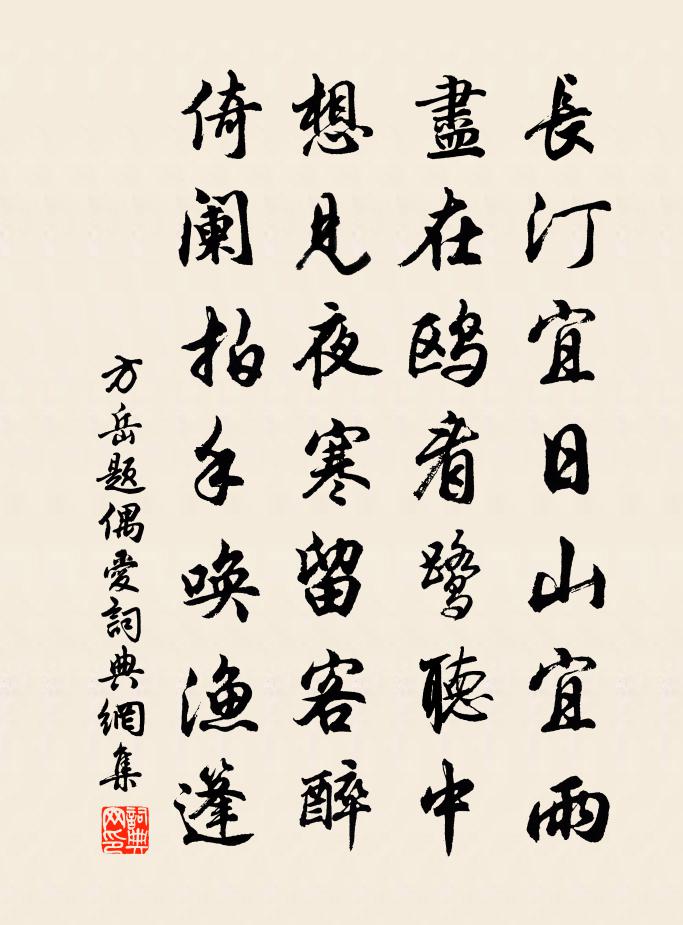 長汀宜日山宜雨
盡在鸥看鹭聽中
想見夜寒留客醉
倚阑拍手唤渔篷
方岳题偶爱詞典網集
詞典